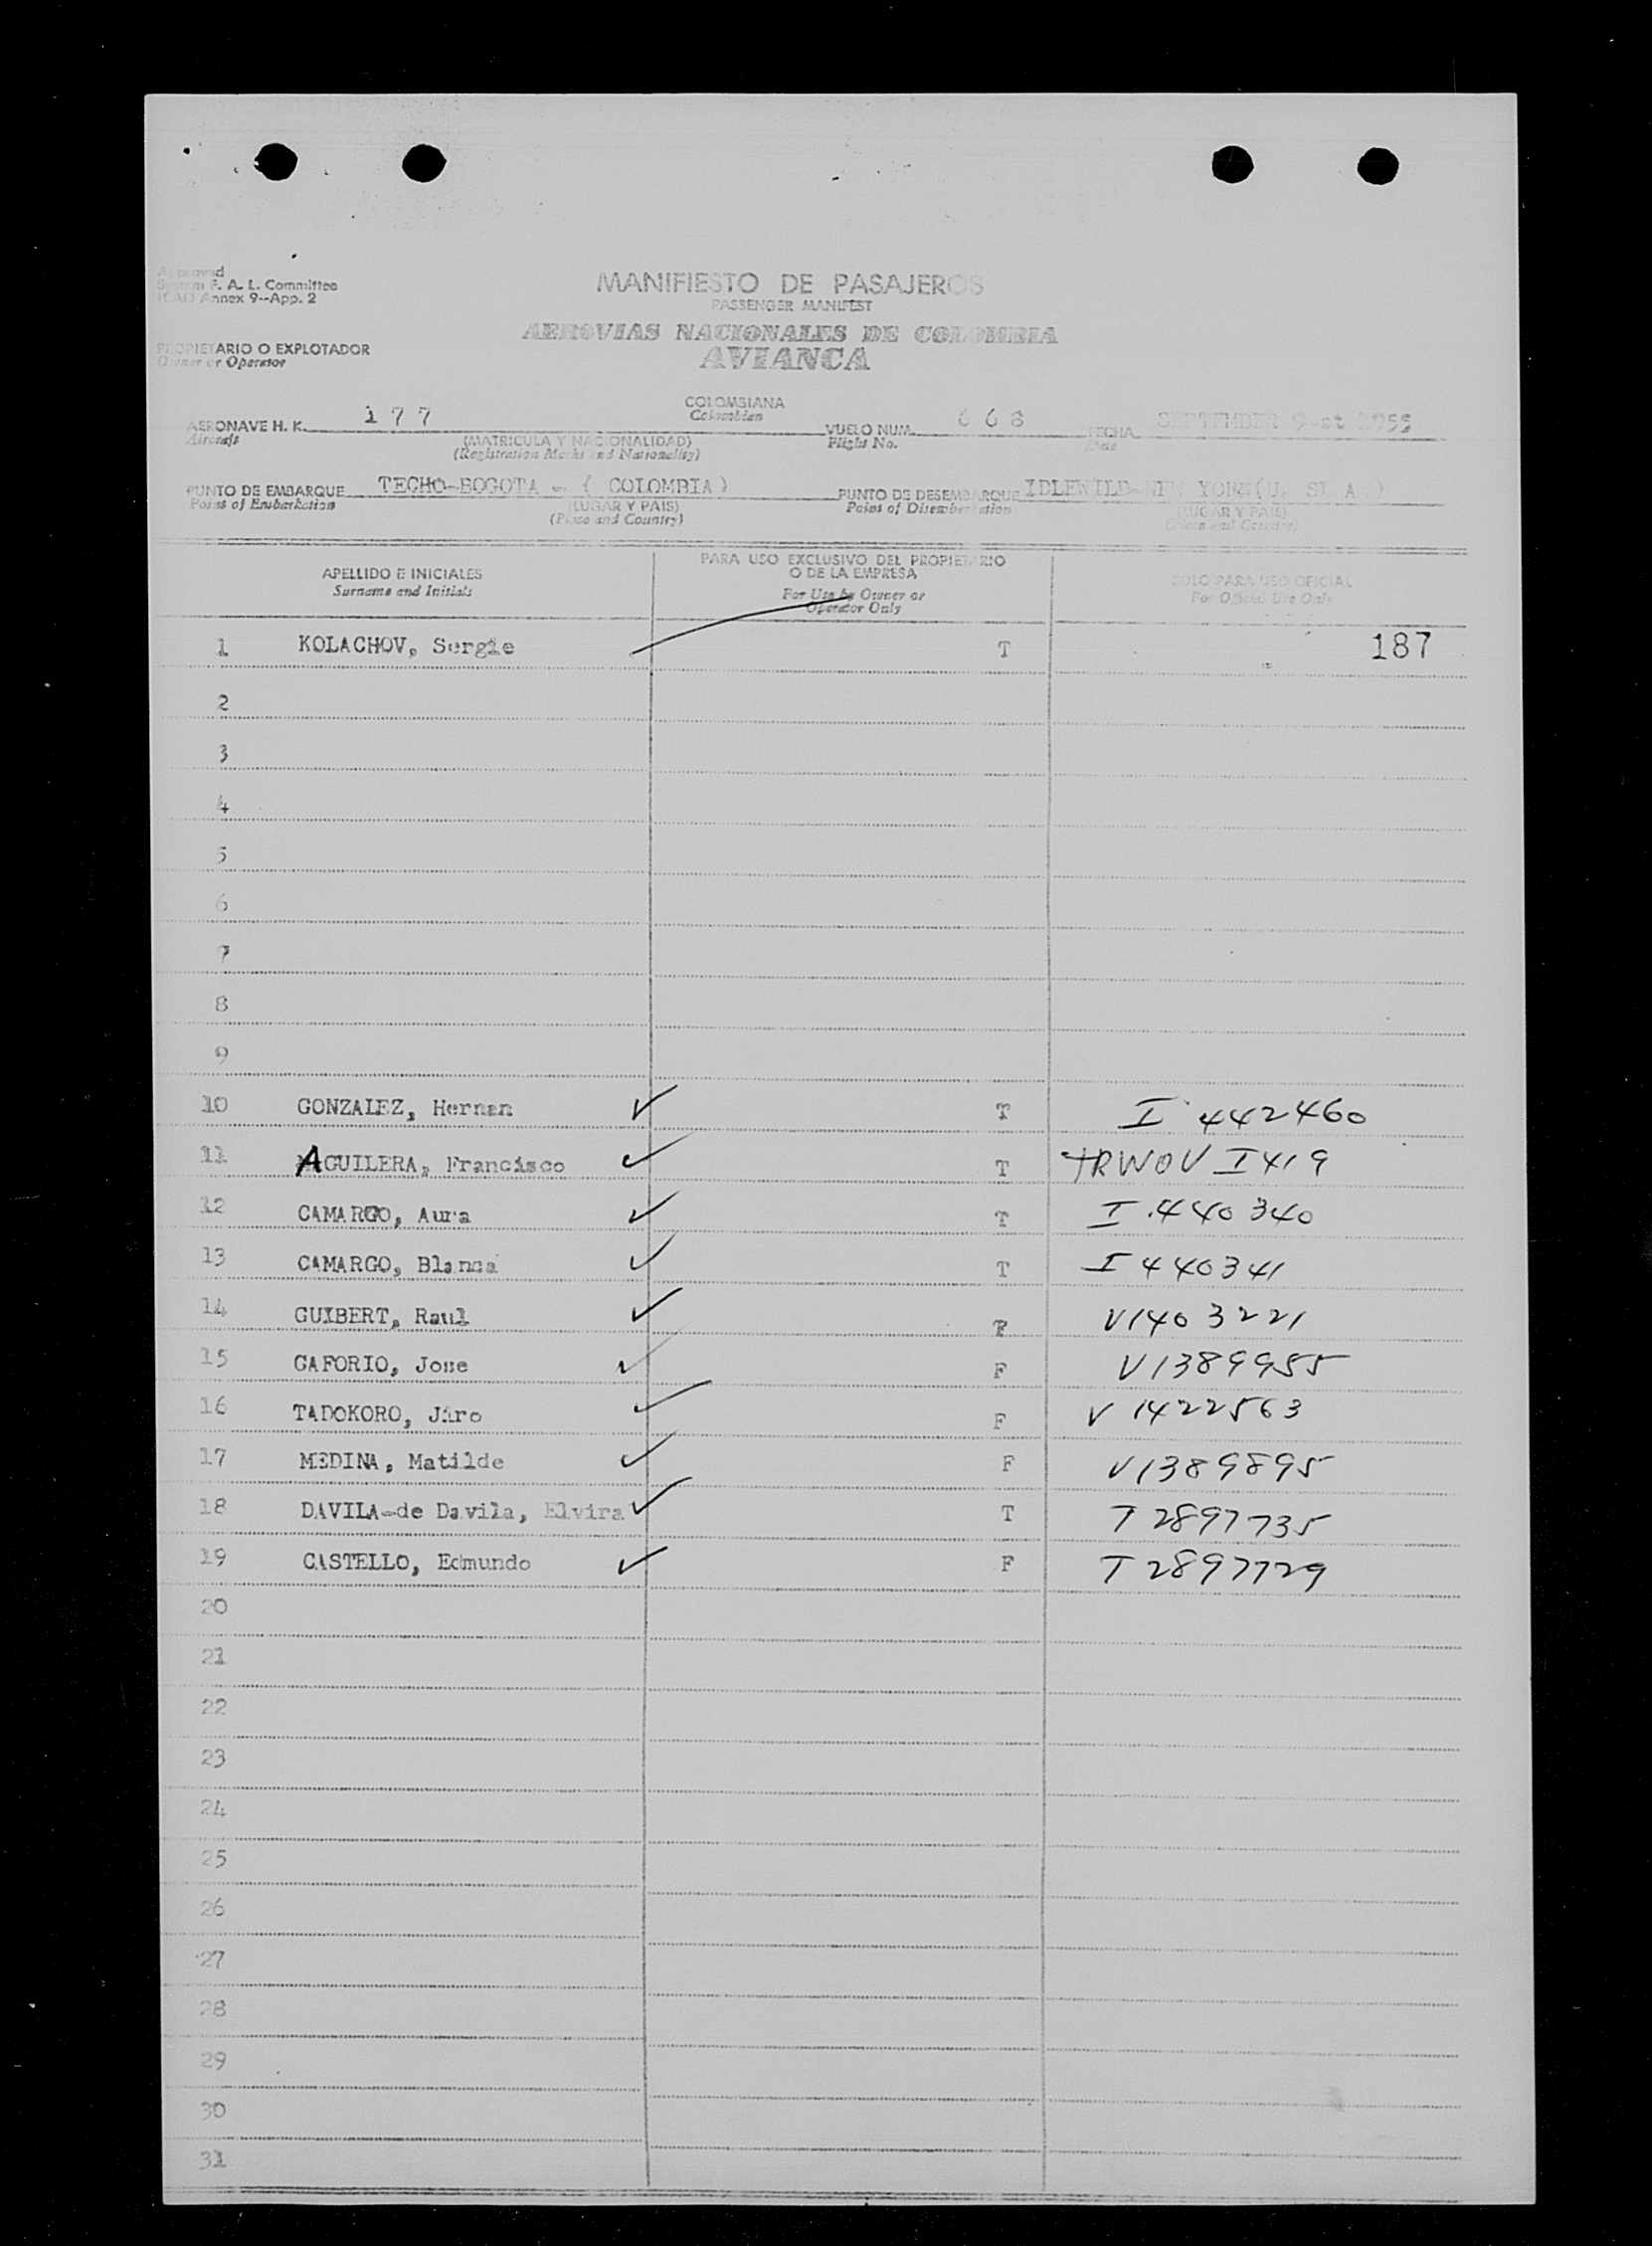 Approved
System F. A. L. Committee
ICAO Annex 9--App. 2
MANIFIESTO DE PASAJEROS
PASSENGER MANIFEST
AEROVIAS NACIONALES DE COLOMBIA
AVIANCA
PROPIETARIO O EXPLOTADOR
Owner or Operator
AERONAVE H. K. 177 COLOMBIANA VUELO NUM. 668 FECHA SEPTEMBER 1955
Aircraft Colombian Flight No. Date
(MATRICULA Y NACIONALIDAD)
(Registration Marks and Nationality)
PUNTO DE EMBARQUE TECHO-BOGOTA - ( COLOMBIA ) PUNTO DE DESEMBARQUE IDLEWILD-NEW YORK(U. S. A.)
Points of Embarkation (LUGAR Y PAIS) Point of Disembarkation (LUGAR Y PAIS)
(Place and Country) (Place and Country)
APELLIDO E INICIALES
Surname and Initials
PARA USO EXCLUSIVO DEL PROPIETARIO
O DE LA EMPRESA
For Use by Owner or
Operator Only
SOLO PARA USO OFICIAL
For Official Use Only
1 KOLACHOV, Sergie T 187
2
3
4
5
6
7
8
9
10 GONZALEZ, Hernan T I 442460
11 AGUILERA, Francisco T TRWOV I419
12 CAMARGO, Aura T I 440340
13 CAMARGO, Blanca T I 440341
14 GUIBERT, Raul V1403221
15 CAFORIO, Jose F V1389955
16 TADOKORO, Jiro F V 1422563
17 MEDINA, Matilde F V1389895
18 DAVILA-de Davila, Elvira T T 2897735
19 CASTELLO, Edmundo F T 2897729
20
21
22
23
24
25
26
27
28
29
30
31